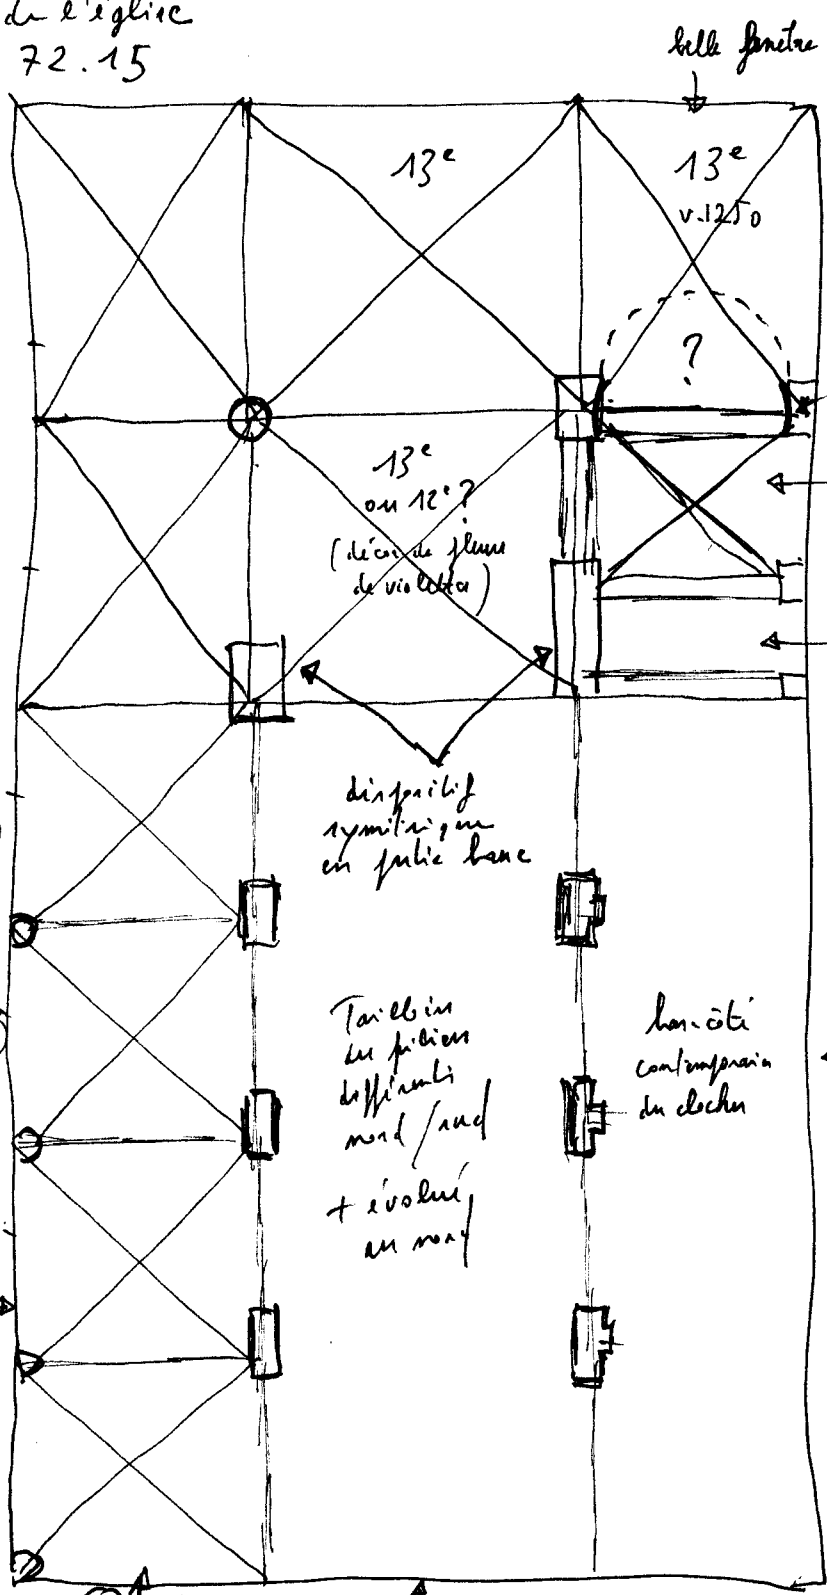 de l'église
72.15
belle fenêtre
13e
13e
v.1250
?
13e
ou 12e ?
(décor de fleurs
de violettes)
dispositif
symétrique
en partie basse
Tailloirs
des piliers
différents
nord / sud
+ évolué
au nord
bas-côté
contemporain
du clocher